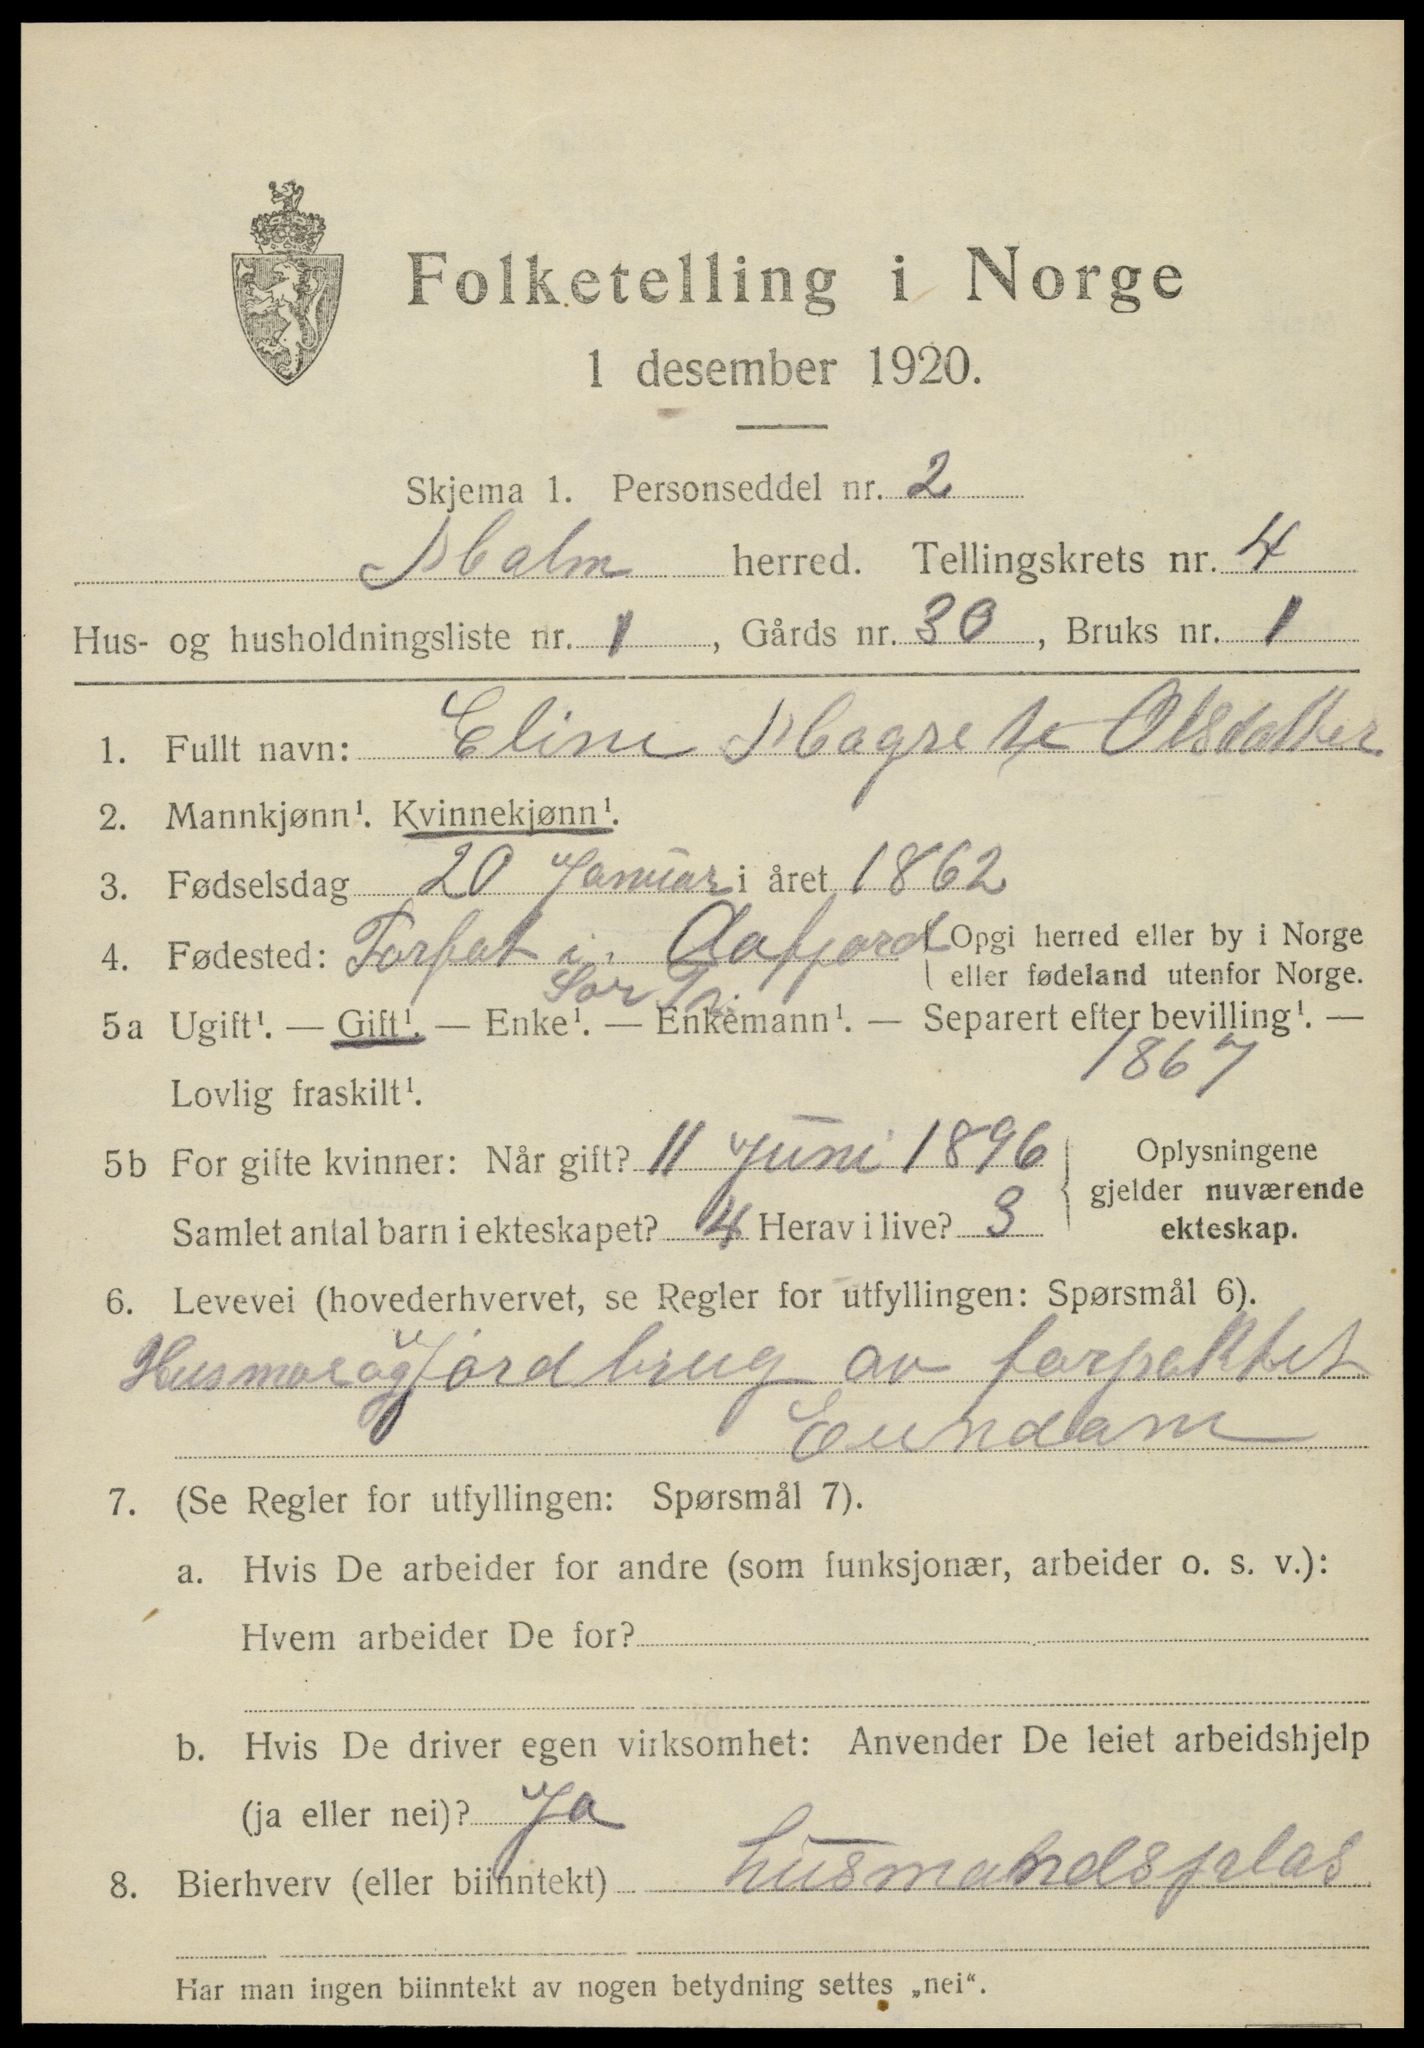 Folketelling i Norge
1 desember 1920.
Skjema 1. Personseddel nr. 2
Malm herred. Tellingskrets nr. 4
Hus- og husholdningsliste nr. 1, Gårds nr. 30, Bruks nr. 1
1. Fullt navn: Eline Magrete Olsdatter
2. Mannkjønn¹. Kvinnekjønn¹.
3. Fødselsdag 20 Januar i året 1862
4. Fødested: Torfat i. Aafjord { Opgi herred eller by i Norge
eller fødeland utenfor Norge.
Sør Tr.
5a Ugift¹. — Gift¹. — Enke¹. — Enkemann¹. — Separert efter bevilling¹. —
Lovlig fraskilt¹. 1867
5b For gifte kvinner: Når gift? 11 Juni 1896 { Oplysningene
gjelder nuværende
ekteskap.
Samlet antal barn i ekteskapet? 4 Herav i live? 3
6. Levevei (hovederhvervet, se Regler for utfyllingen: Spørsmål 6).
Husmor og jordbrug av forpaktet
Eiendom
7. (Se Regler for utfyllingen: Spørsmål 7).
a. Hvis De arbeider for andre (som funksjonær, arbeider o. s. v.):
Hvem arbeider De for?
b. Hvis De driver egen virksomhet: Anvender De leiet arbeidshjelp
(ja eller nei)? Ja
8. Bierhverv (eller biinntekt) husmandsplas
Har man ingen biinntekt av nogen betydning settes „nei“.